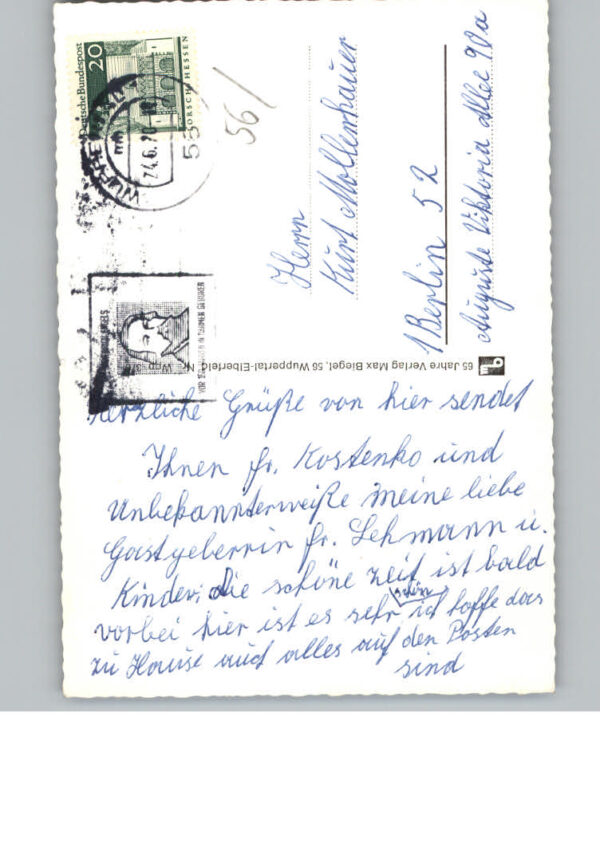 Deutsche Bundespost
20
LORSCH/HESSEN
WUPPERTAL
24.6.70
56/
Herrn
Kurt Mollenhauer
1 Berlin 52
Auguste Viktoria Allee 90a
65 Jahre Verlag Max Biegel, 56 Wuppertal-Elberfeld, Nr. Wpp.
Herzliche Grüße von hier sendet
Ihnen fr. Kostenko und
Unbekannterweiße meine liebe
Gastgeberrin fr. Lehmann u.
Kinder, die schöne zeit ist bald
vorbei hier ist es sehr schön ich hoffe das
zu Hause auch alles auf den Posten
sind